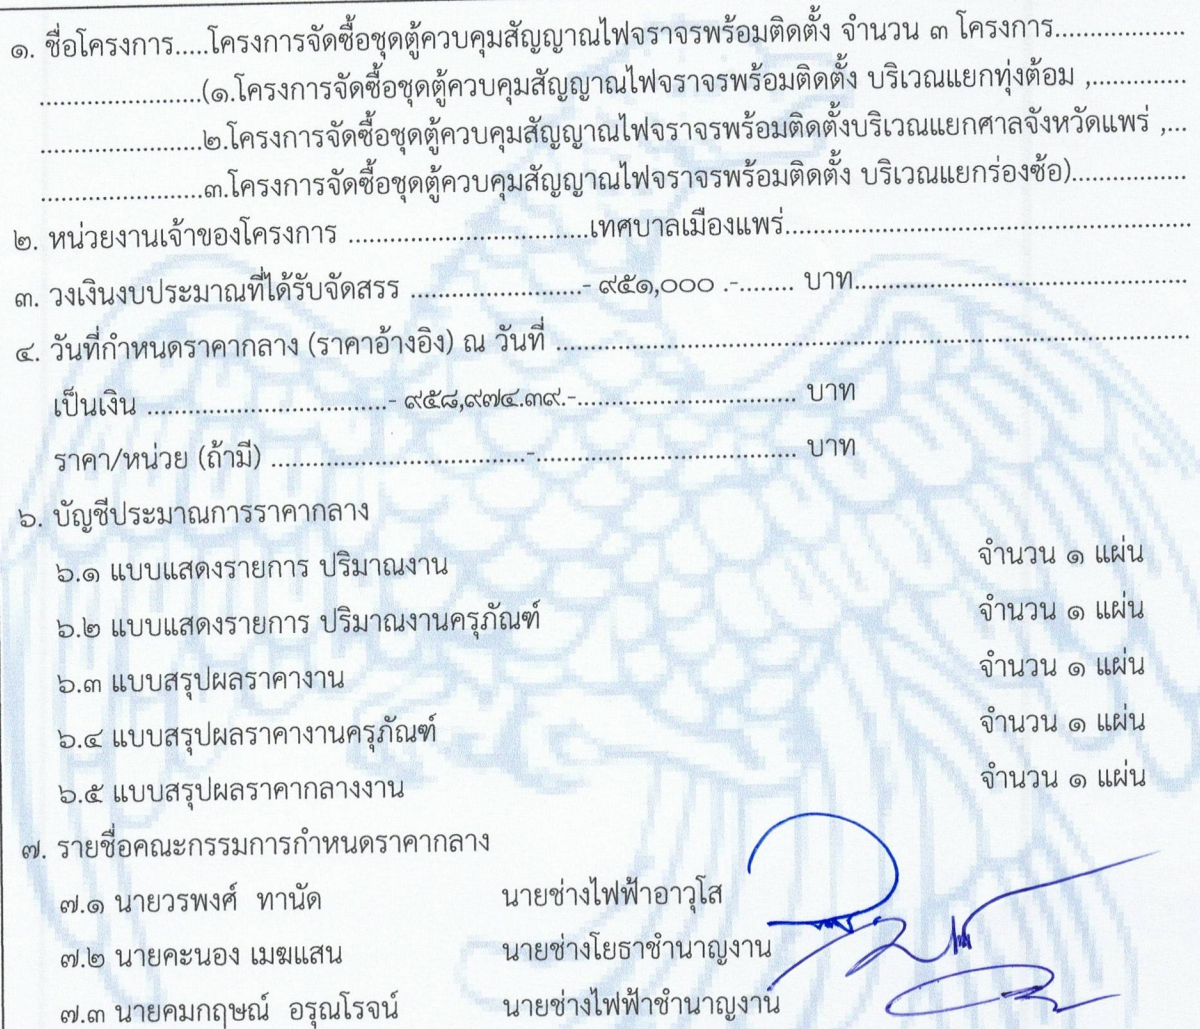 ๑. ชื่อโครงการ.....โครงการจัดซื้อชุดตู้ควบคุมสัญญาณไฟจราจรพร้อมติดตั้ง จำนวน ๓ โครงการ..................
.......................(๑.โครงการจัดซื้อชุดตู้ควบคุมสัญญาณไฟจราจรพร้อมติดตั้ง บริเวณแยกทุ่งต้อม ,.............
.......................๒.โครงการจัดซื้อชุดตู้ควบคุมสัญญาณไฟจราจรพร้อมติดตั้งบริเวณแยกศาลจังหวัดแพร่ ,...
.......................๓.โครงการจัดซื้อชุดตู้ควบคุมสัญญาณไฟจราจรพร้อมติดตั้ง บริเวณแยกร่องซ้อ)................
๒. หน่วยงานเจ้าของโครงการ ..................................เทศบาลเมืองแพร่..........................................................
๓. วงเงินงบประมาณที่ได้รับจัดสรร ........................- ๙๕๑,๐๐๐ .-........ บาท...............................................
๔. วันที่กำหนดราคากลาง (ราคาอ้างอิง) ณ วันที่ ..........................................................................................
เป็นเงิน ..................................- ๙๕๘,๙๗๔.๓๙.-............................... บาท
ราคา/หน่วย (ถ้ามี) ....................................-..................................... บาท
๖. บัญชีประมาณการราคากลาง
๖.๑ แบบแสดงรายการ ปริมาณงาน จำนวน ๑ แผ่น
๖.๒ แบบแสดงรายการ ปริมาณงานครุภัณฑ์ จำนวน ๑ แผ่น
๖.๓ แบบสรุปผลราคางาน จำนวน ๑ แผ่น
๖.๔ แบบสรุปผลราคางานครุภัณฑ์ จำนวน ๑ แผ่น
๖.๕ แบบสรุปผลราคากลางงาน จำนวน ๑ แผ่น
๗. รายชื่อคณะกรรมการกำหนดราคากลาง
๗.๑ นายวรพงศ์ ทานัด นายช่างไฟฟ้าอาวุโส
๗.๒ นายคะนอง เมฆแสน นายช่างโยธาชำนาญงาน
๗.๓ นายคมกฤษณ์ อรุณโรจน์ นายช่างไฟฟ้าชำนาญงาน